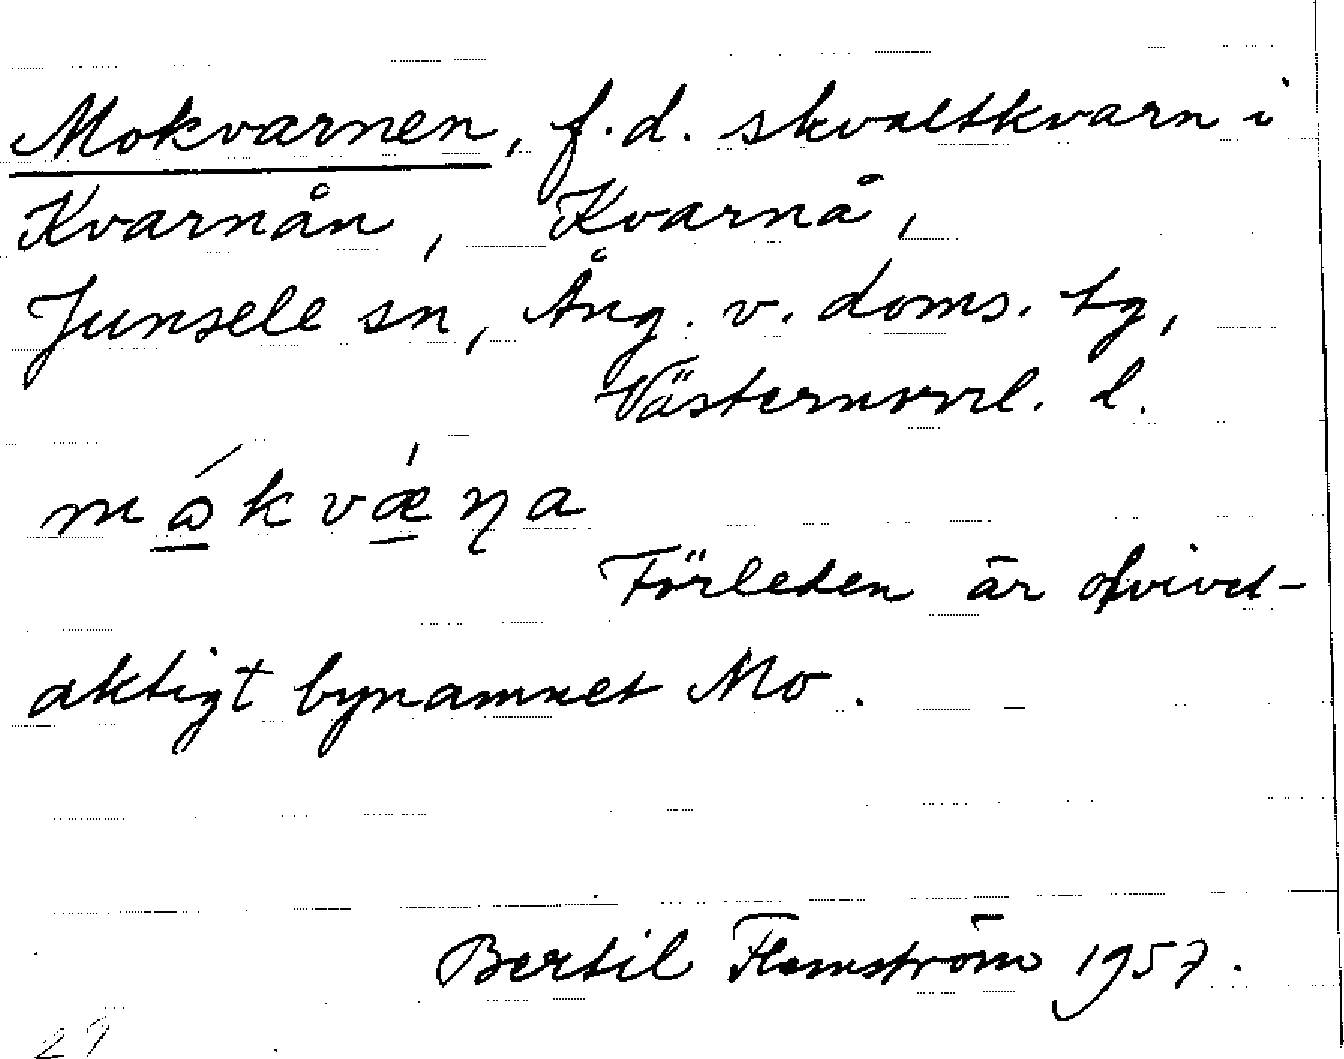 Mokvarnen, f.d. skvaltkvarn i
Kvarnån, Kvarnå,
Junsele sn, Ång. v. doms. tg,
Västernorrl. l.
Förleden är otvivel-
aktigt bynamnet Mo.
Bertil Flemström 1957.
29